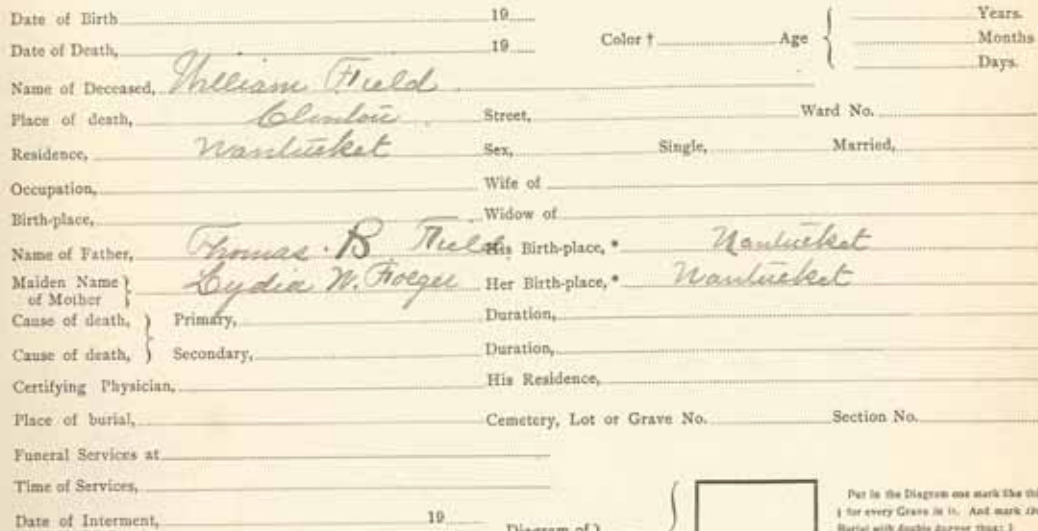 Date of Birth 19
Date of Death, 19 Color † Age { Years.
Months
Days.
Name of Deceased, William Field
Place of death, Clinton Street, Ward No.
Residence, Nantucket Sex, Single, Married,
Occupation, Wife of
Birth-place, Widow of
Name of Father, Thomas . B Field His Birth-place, * Nantucket
Maiden Name of Mother } Lydia W. Folger Her Birth-place, * Nantucket
Cause of death, } Primary, Duration,
Cause of death, } Secondary, Duration,
Certifying Physician, His Residence,
Place of burial, Cemetery, Lot or Grave No. Section No.
Funeral Services at
Time of Services,
Date of Interment, 19 Diagram of }
Put in the Diagram one mark like this
for every Grave in it. And mark
Burial with double